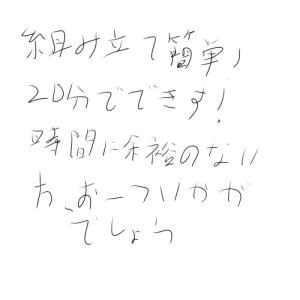 組み立て簡単!
20分でできす!
時間に余裕のない
方、お一ついかが
でしょう